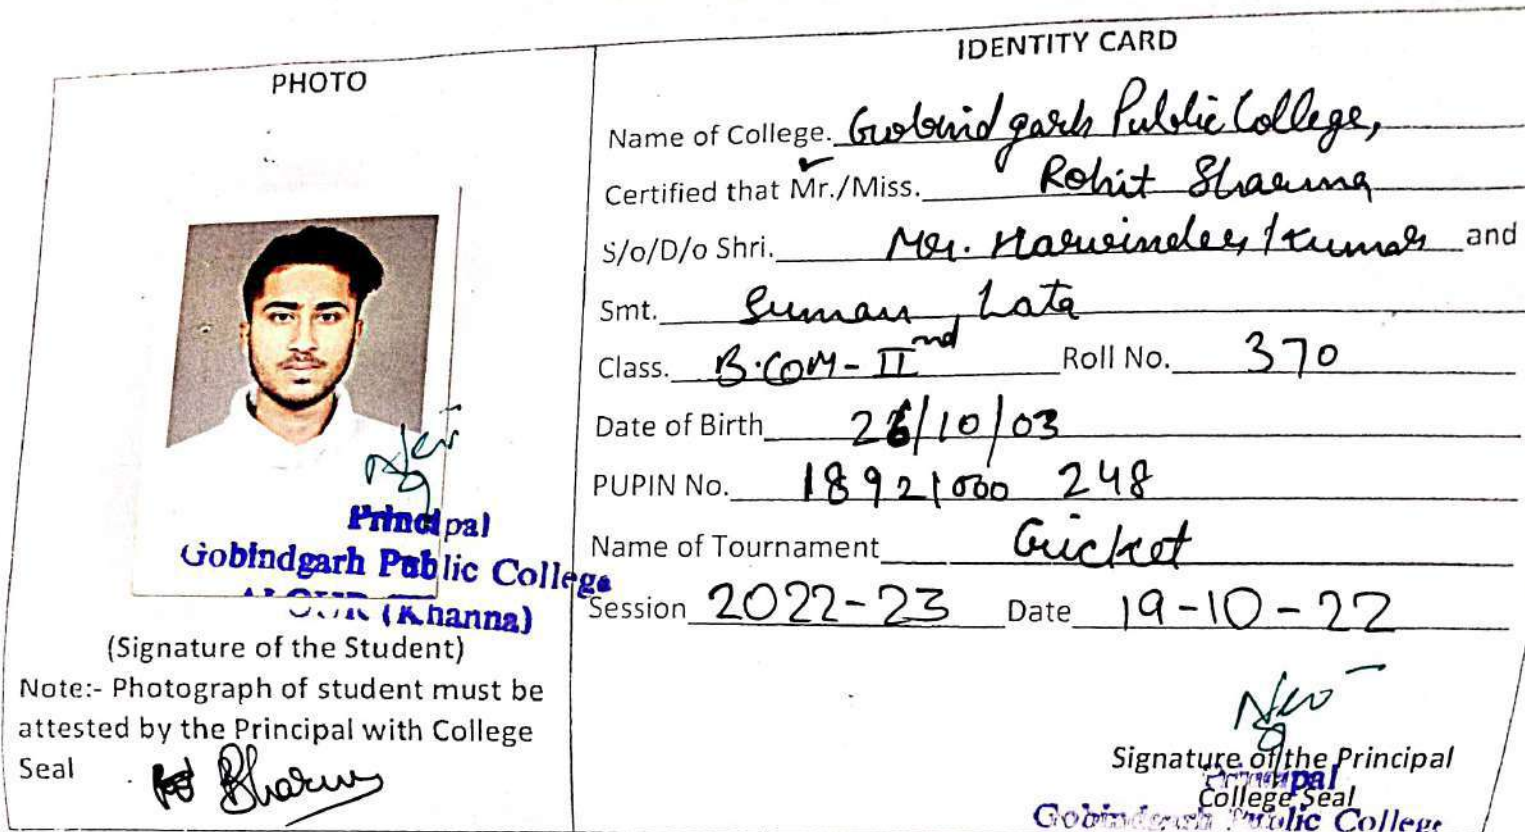 PHOTO
Principal
Gobindgarh Public College
(Khanna)
(Signature of the Student)
Note:- Photograph of student must be
attested by the Principal with College
Seal
IDENTITY CARD
Name of College. Gobindgarh Public College,
Certified that Mr./Miss. Rohit Sharma
S/o/D/o Shri. Mr. Harwinder Kumar and
Smt. Suman Lata
Class. B.COM-IInd Roll No. 370
Date of Birth 26/10/03
PUPIN No. 18921000 248
Name of Tournament Cricket
Session 2022-23 Date 19-10-22
Signature of the Principal
Principal
College Seal
Gobindgarh Public College